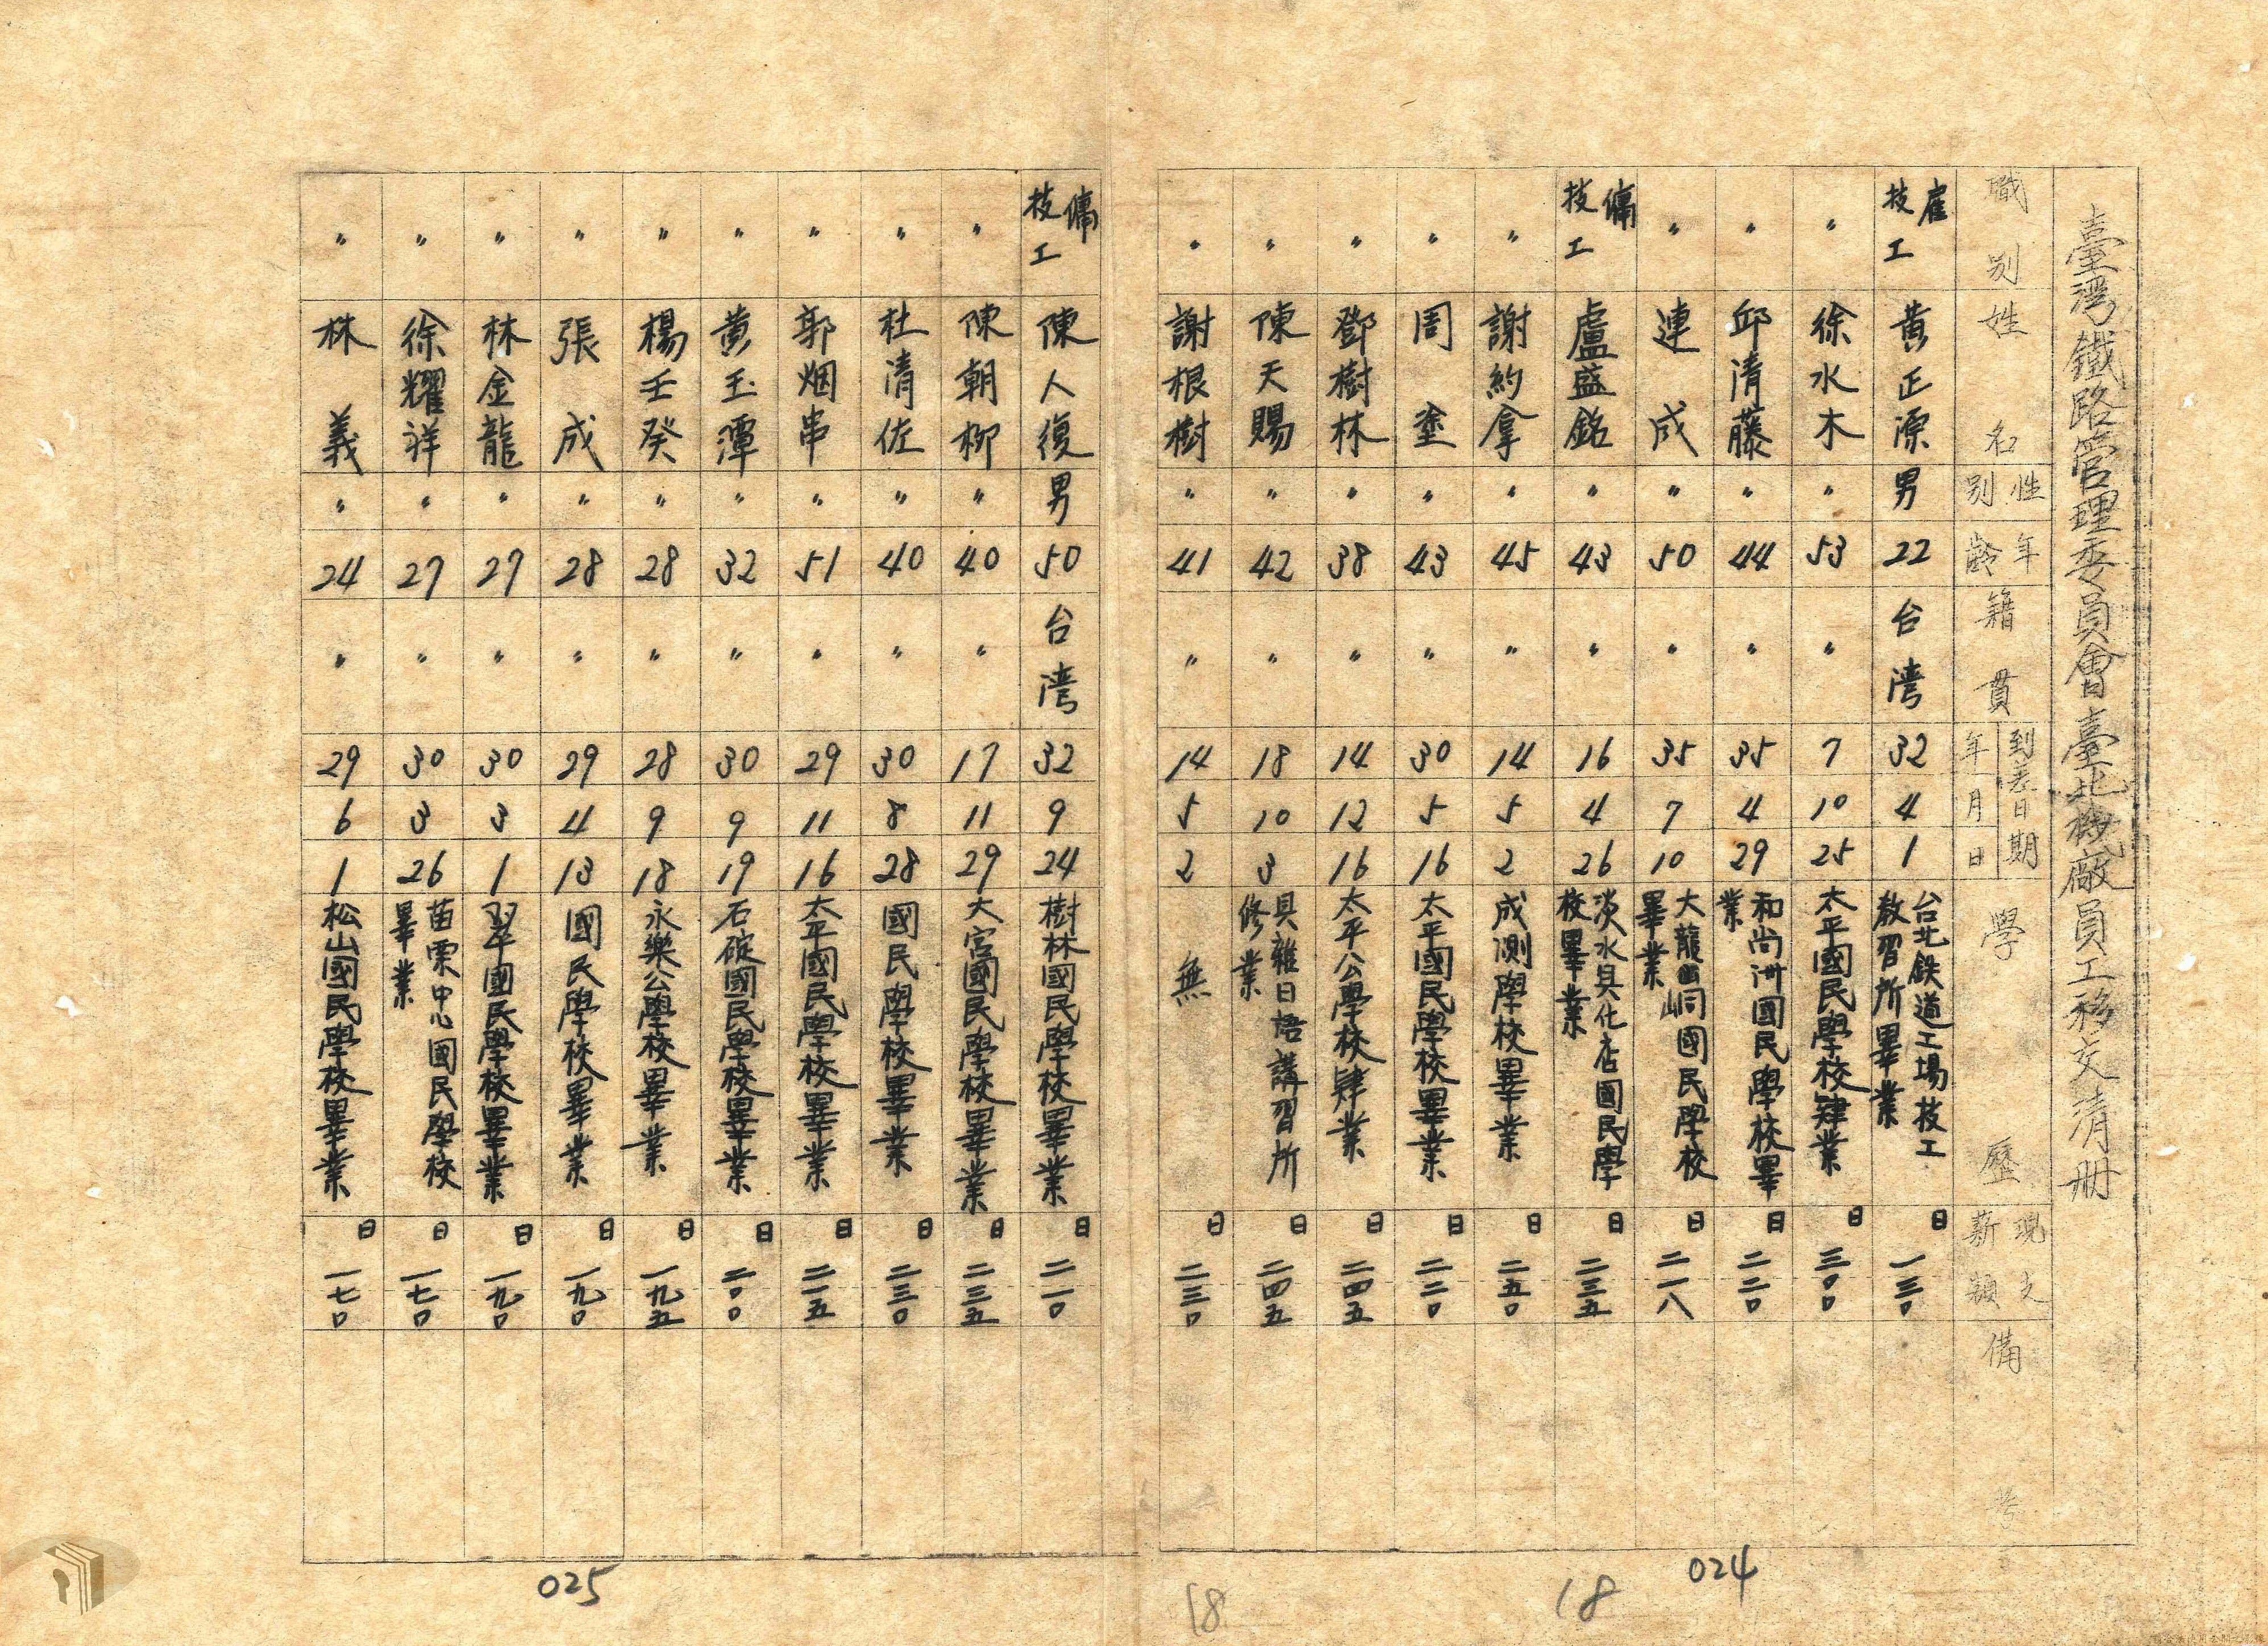 臺灣鐵路管理委員會臺北機廠員工移交清冊
職別 姓名 性別 年齡 籍貫 到差日期 年 月 日 學歷 現支薪額 備考
雇技工 黃正源 男 22 台灣 32 4 1 台北鉄道工場技工教習所畢業 日 一三〇
〃 徐水木 〃 53 〃 7 10 25 太平國民學校肄業 日 三〇〇
〃 邱清藤 〃 44 〃 35 4 29 和尚洲國民學校畢業 日 二二〇
〃 連成 〃 50 〃 35 7 10 大龍峒國民學校畢業 日 二一八
傭技工 盧盛銘 〃 43 〃 16 4 26 淡水具化店國民學校畢業 日 二三五
〃 謝約拿 〃 45 〃 14 5 2 成測學校畢業 日 二五〇
〃 周塗 〃 43 〃 30 5 16 太平國民學校畢業 日 二二〇
〃 鄧樹林 〃 38 〃 14 12 16 太平公學校肄業 日 二四五
〃 陳天賜 〃 42 〃 18 10 3 具雜日語講習所修業 日 二四五
〃 謝根樹 〃 41 〃 14 5 2 無 日 二三〇
024
18
18
傭技工 陳人復 男 50 台灣 32 9 24 樹林國民學校畢業 日 二一〇
〃 陳朝柳 〃 40 〃 17 11 29 大宮國民學校畢業 日 二三五
〃 杜清佐 〃 40 〃 30 8 28 國民學校畢業 日 二三〇
〃 郭烟串 〃 51 〃 29 11 16 太平國民學校畢業 日 二一五
〃 黃玉潭 〃 32 〃 30 9 19 石碇國民學校畢業 日 二〇〇
〃 楊壬癸 〃 28 〃 28 9 18 永樂公學校畢業 日 一九五
〃 張成 〃 28 〃 29 4 13 國民學校畢業 日 一九〇
〃 林金龍 〃 27 〃 30 3 1 國民學校畢業 日 一九〇
〃 徐耀祥 〃 27 〃 30 3 26 苗栗中心國民學校畢業 日 一七〇
〃 林義 〃 24 〃 29 6 1 松山國民學校畢業 日 一七〇
025